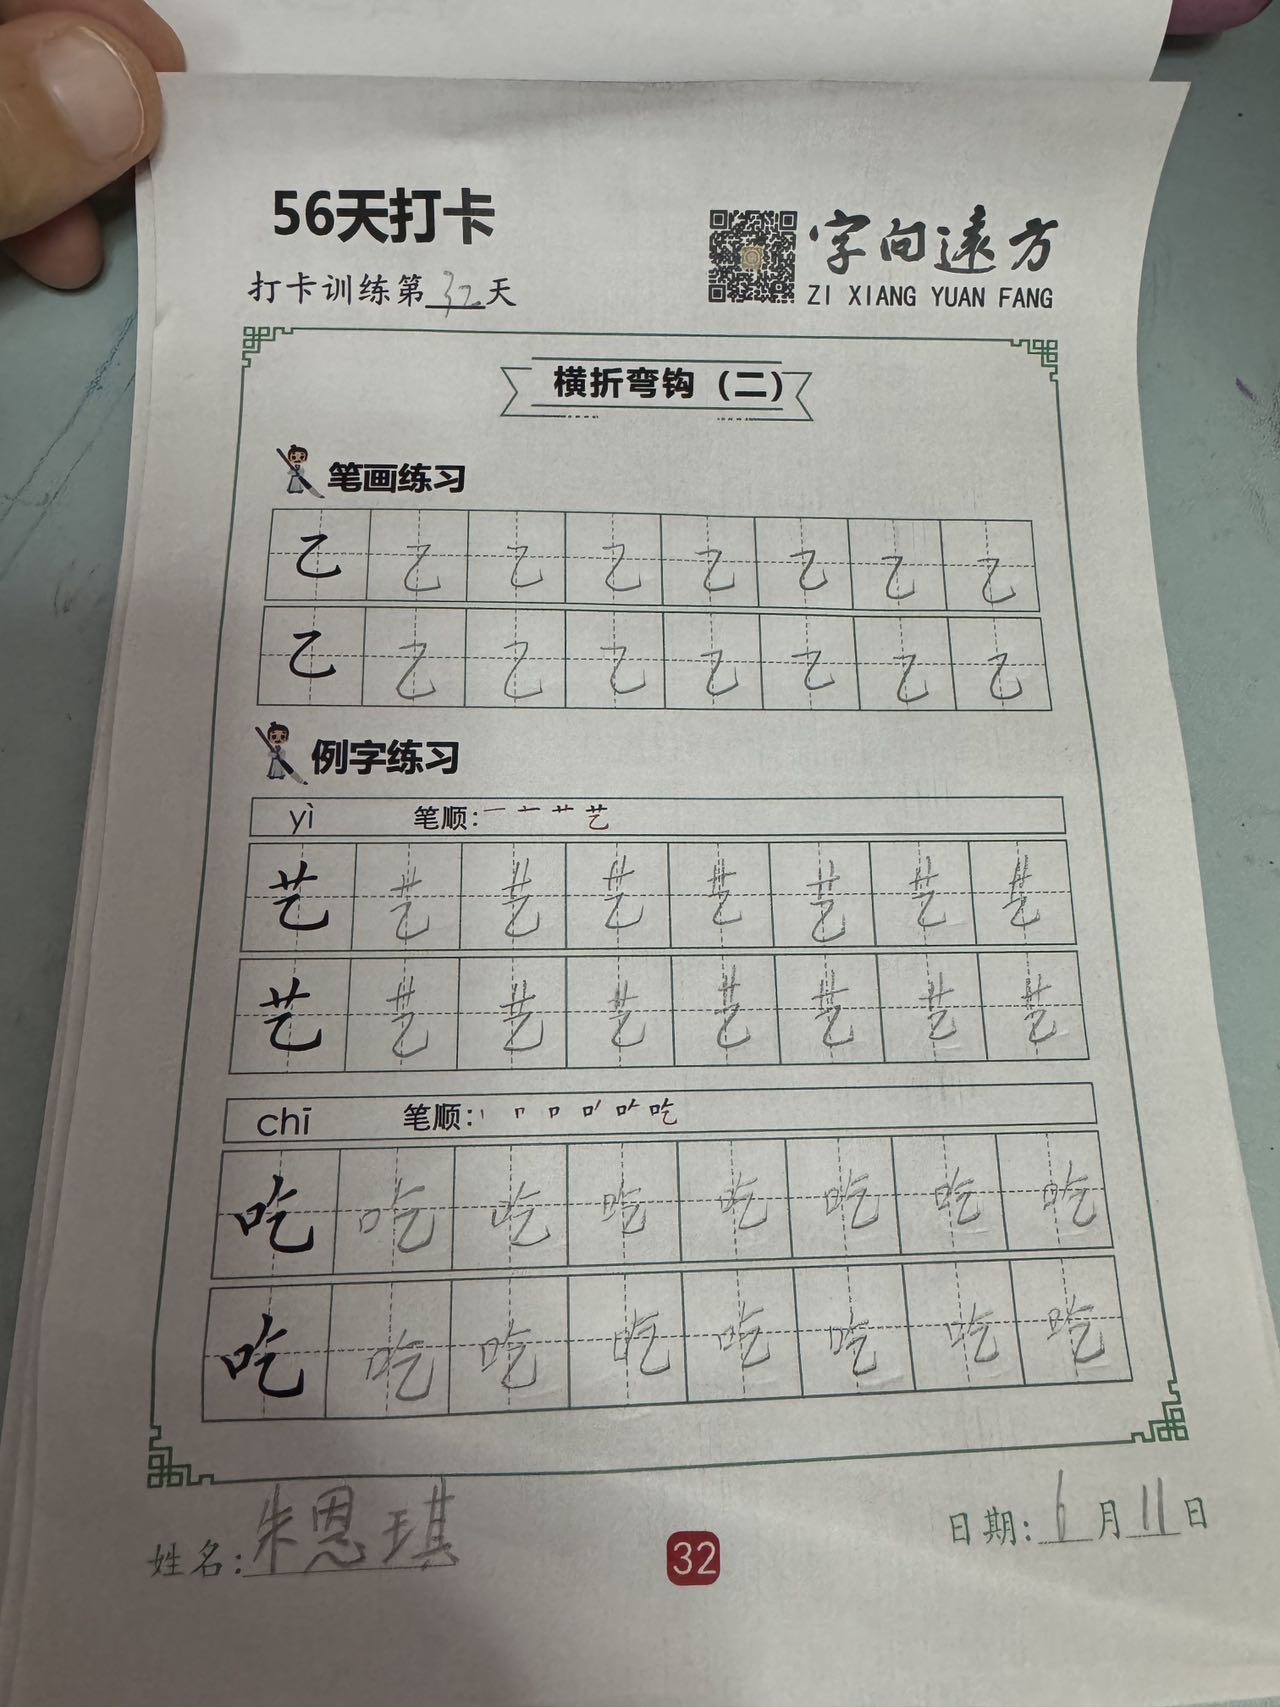 56天打卡
字向远方
打卡训练第32天
ZI XIANG YUAN FANG
横折弯钩（二）
笔画练习
乙 乙 乙 乙 乙 乙 乙 乙
乙 乙 乙 乙 乙 乙 乙 乙
例字练习
yì 笔顺：一 亠 艹 艺
艺 艺 艺 艺 艺 艺 艺 艺
艺 艺 艺 艺 艺 艺 艺 艺
chī 笔顺：丨 冂 口 吃
吃 吃 吃 吃 吃 吃 吃 吃
吃 吃 吃 吃 吃 吃 吃 吃
姓名：朱恩琪
32
日期：6月11日